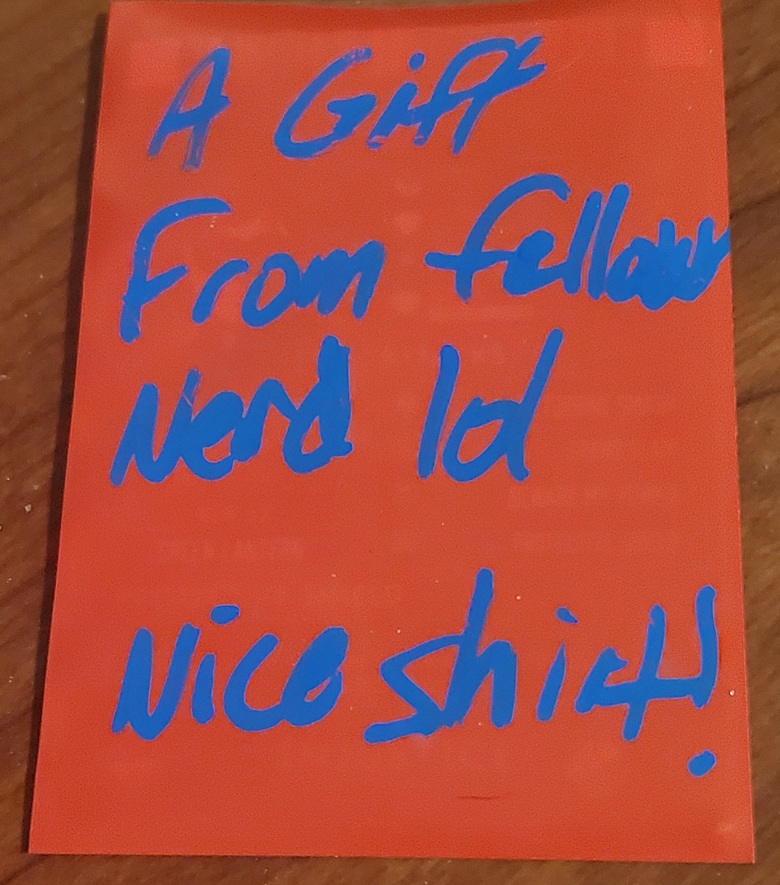 A Gift
From fellow
Nerd lol
Nice shirt!